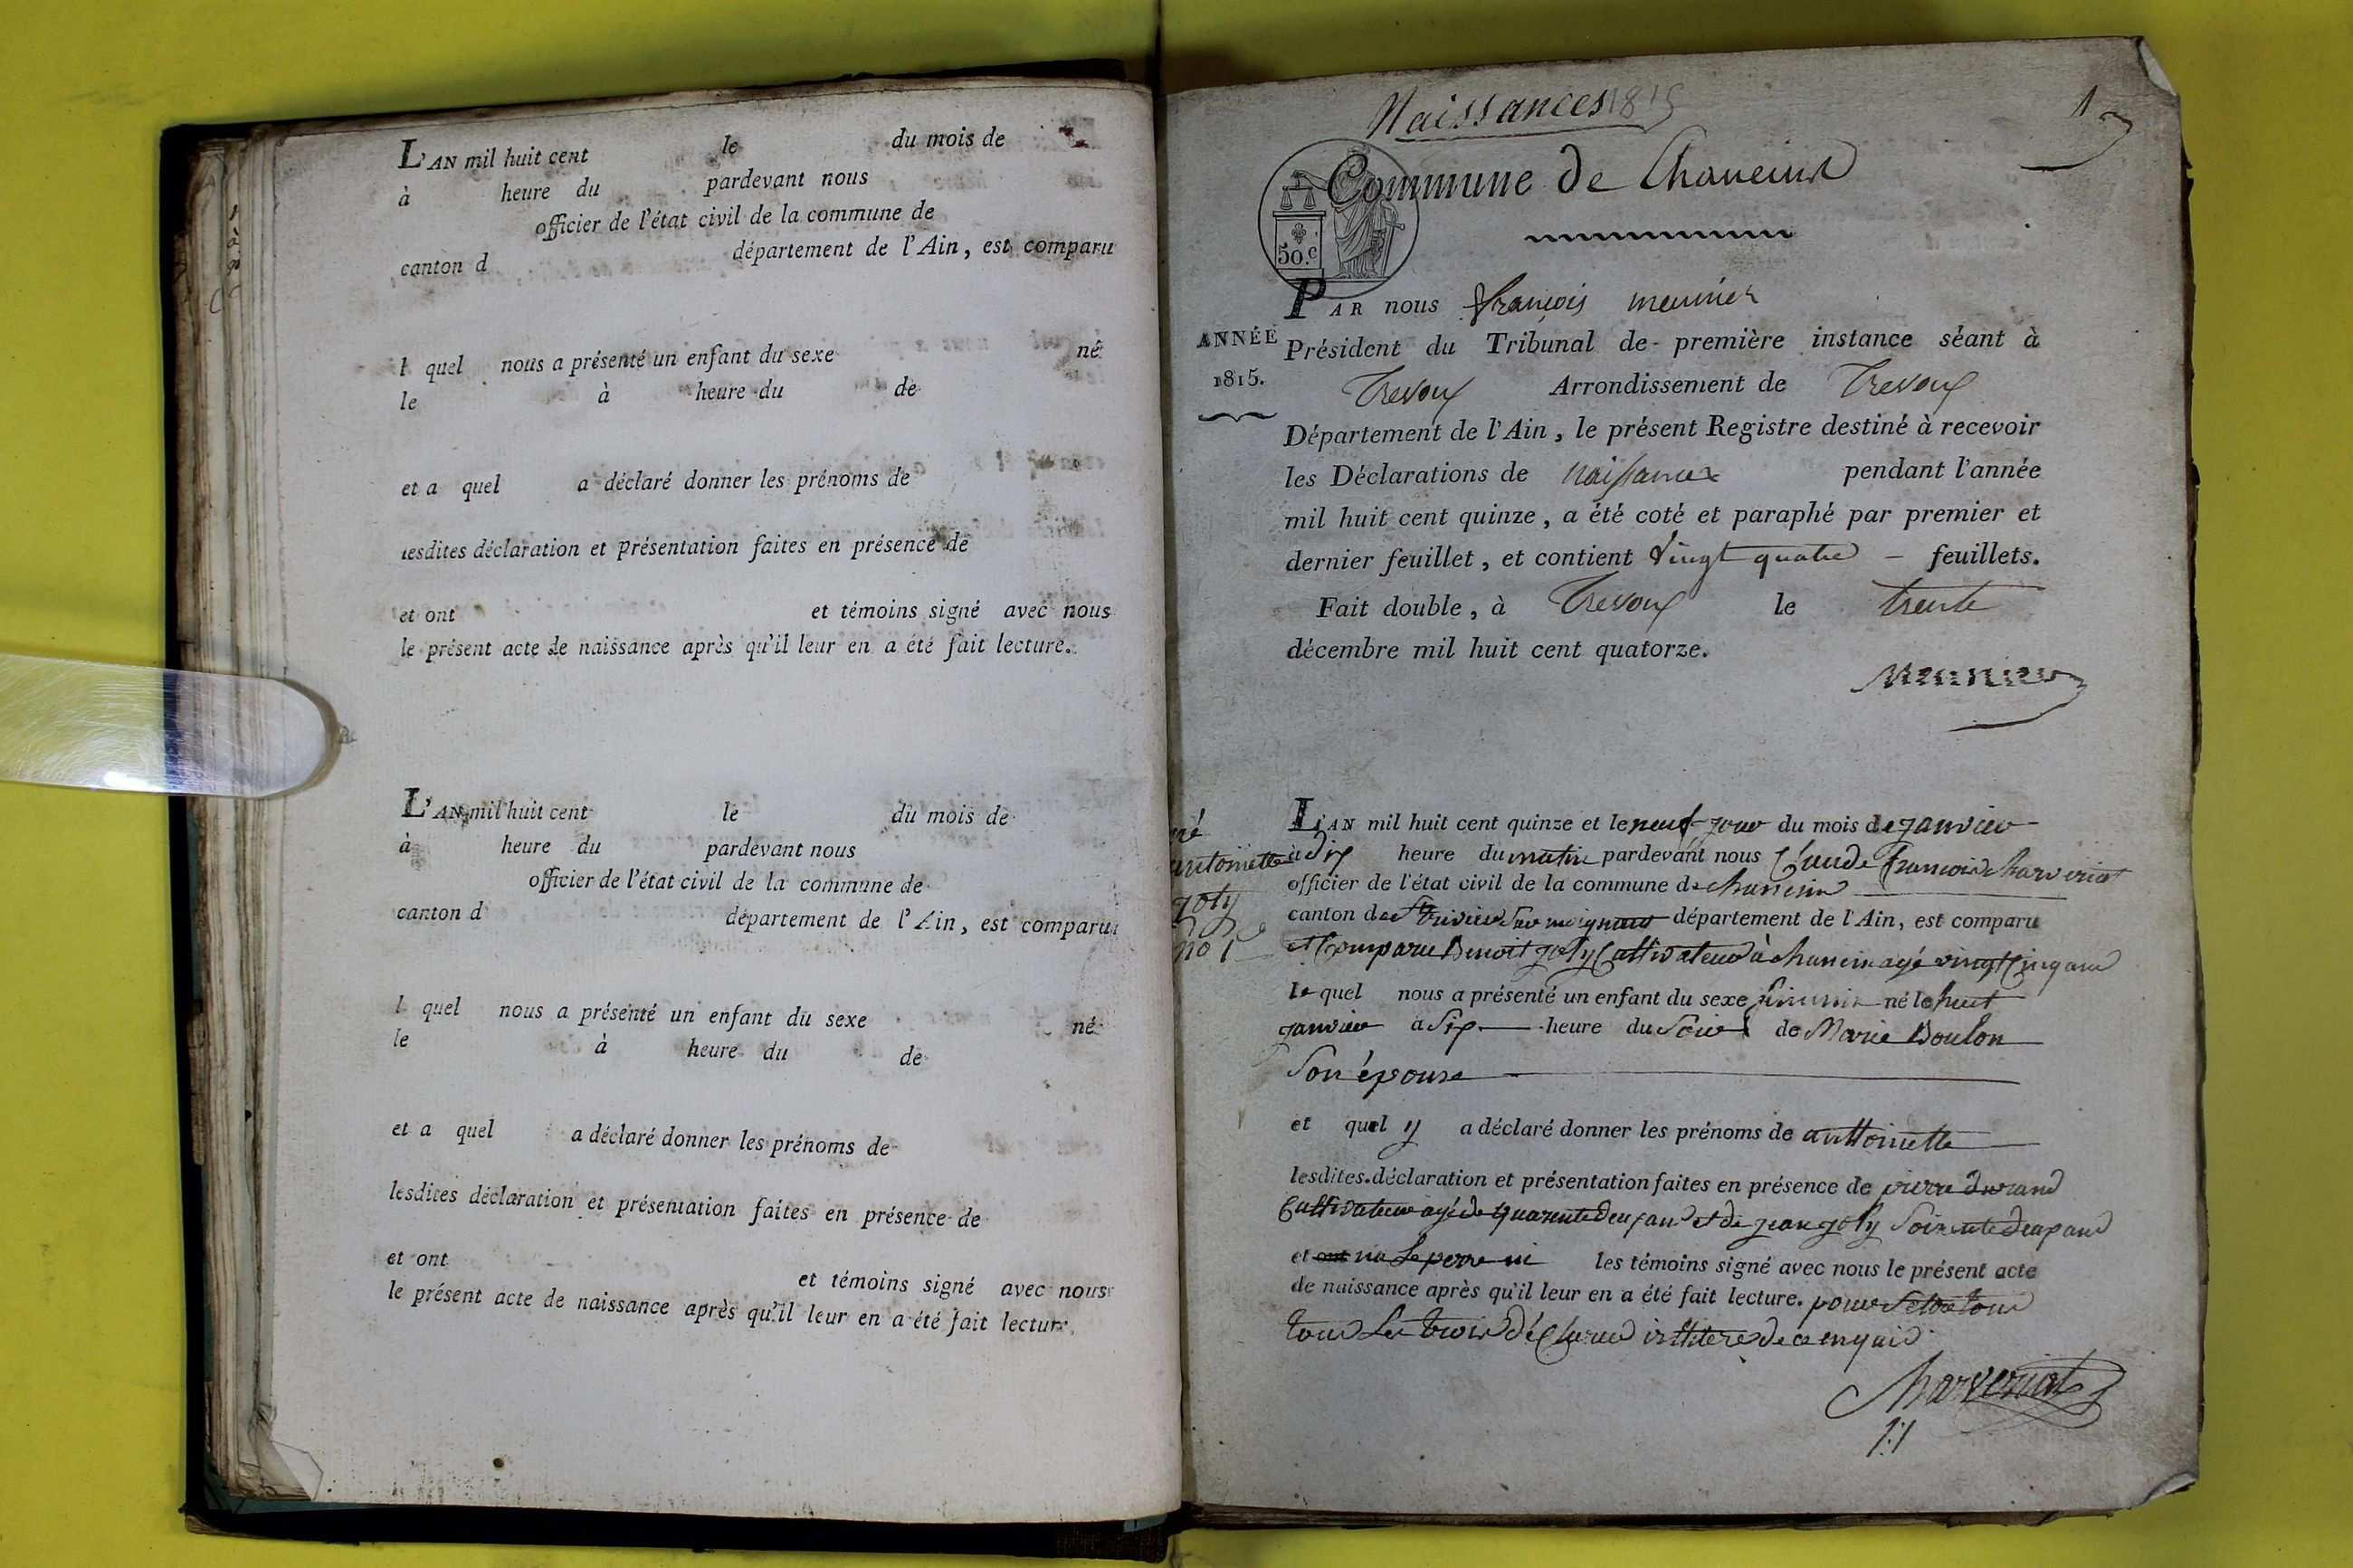 L'AN mil huit cent le du mois de
à heure du pardevant nous
officier de l'état civil de la commune de
canton d département de l'Ain, est comparu
l quel nous a présenté un enfant du sexe né
le à heure du de
et a quel a déclaré donner les prénoms de
lesdites déclaration et présentation faites en présence de
et ont et témoins signé avec nous
le présent acte de naissance après qu'il leur en a été fait lecture.
L'AN mil huit cent le du mois de
à heure du pardevant nous
officier de l'état civil de la commune de
canton d département de l'Ain, est comparu
l quel nous a présenté un enfant du sexe né
le à heure du de
et a quel a déclaré donner les prénoms de
lesdites déclaration et présentation faites en présence de
et ont et témoins signé avec nous
le présent acte de naissance après qu'il leur en a été fait lecture.
Naissances 1815
1
Commune de Chaneins
50.c
PAR nous françois meunier
ANNÉE
1815.
Président du Tribunal de première instance séant à
Trevoux Arrondissement de Trevoux
Département de l'Ain, le présent Registre destiné à recevoir
les Déclarations de naissances pendant l'année
mil huit cent quinze, a été coté et paraphé par premier et
dernier feuillet, et contient vingt quatre feuillets.
Fait double, à Trevoux le trente
décembre mil huit cent quatorze.
Meunier
né
antoinette
joly
no 1
L'AN mil huit cent quinze et le neuf jour du mois de janvier
à dix heure du matin pardevant nous Claude françois charveriat
officier de l'état civil de la commune de chaneins
canton de St trivier sur moignans département de l'Ain, est comparu
est Comparu Benoit joly Cultivateur à chanein agé vingt Cinq ans
le quel nous a présenté un enfant du sexe feminin né le huit
janvier a six heure du Soir de Marie Boulon
Son épouse
et quel y a déclaré donner les prénoms de anttoinette
lesdites déclaration et présentation faites en présence de pierre durand
Cultivateur agé de quarente deux ans et de jean joly Soixente deux ans
et ont na Le perre ni les témoins signé avec nous le présent acte
de naissance après qu'il leur en a été fait lecture. pour
tous Les trois déClaré de ce enquis
Charveriat